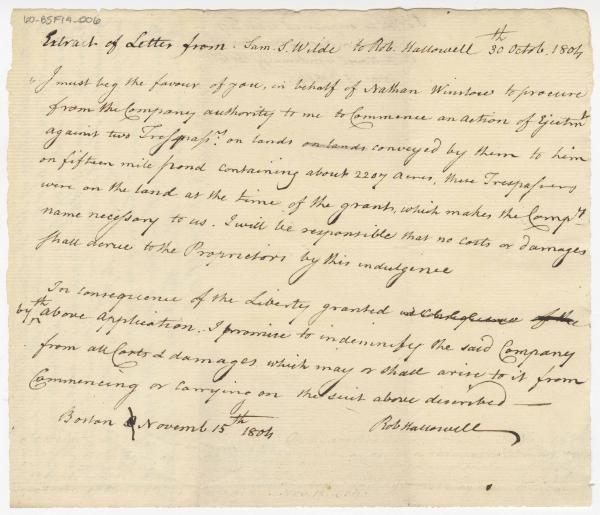 60-BSF14-006
Extract of Letter from Sam. S. Wilde to Rob. Hallowell 30th Octob. 1804
"I must beg the favour of you, in behalf of Nathan Winslow to procure
from the Company authority to me to Commence an action of Ejectmt
against two Trespassrs on lands on lands conveyed by them to him
on fifteen mile pond containing about 2207 acres, these Trespassers
were on the land at the time of the grant, which makes the Compys
name necessary to us. I will be responsible that no costs or damages
shall accrue to the Proprietors by this indulgence
In consequence of the Liberty granted of the
by th above application. I promise to indemnify the said Company
from all Costs & damages which may or shall arise to it from
Commencing or carrying on the suit above described —
Boston Novemb 15th 1804 Rob Hallowell